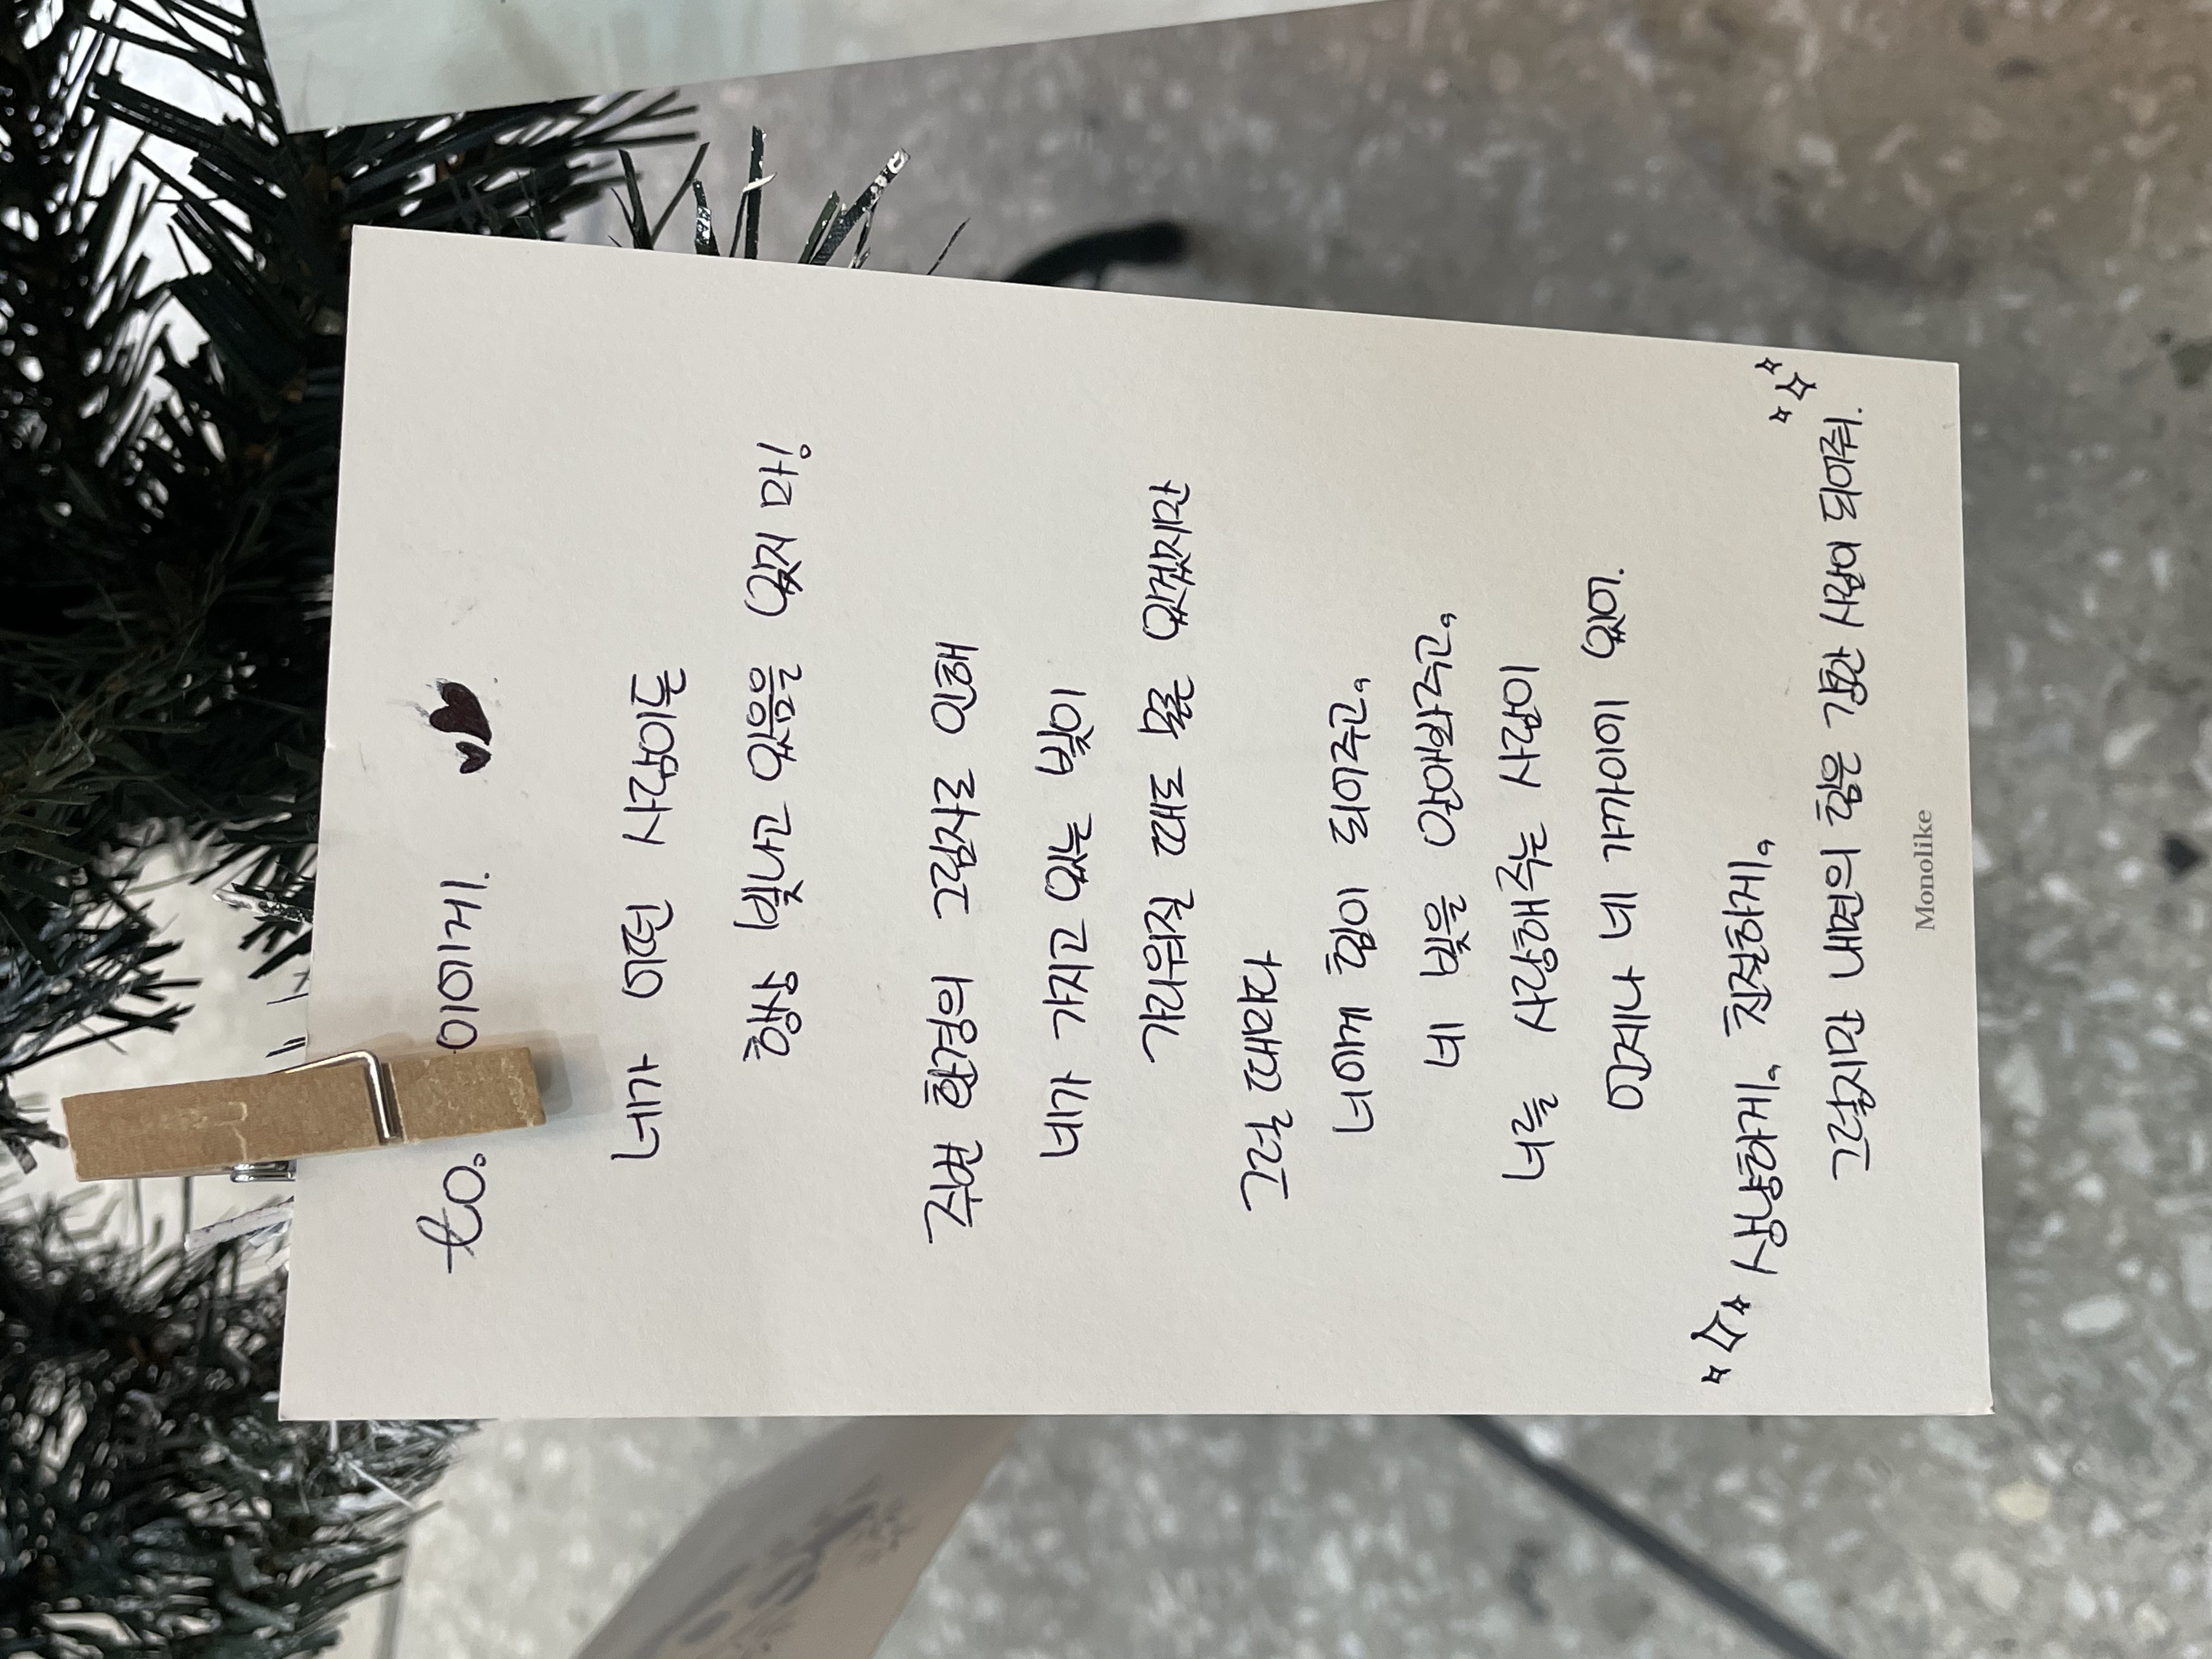 to. 이에게.
네가 어떤 사람이든
항상 빛나고 있음을 잊지 마!
주변 환경의 그림자로 인해
네가 가지고 있는 빛이
가리워질 때도 물론 있겠지만
그럴 때마다
너에게 힘이 되어주고,
네 빛을 알아봐주고,
너를 사랑해주는 사람이
언제나 네 가까이에 있어.
상냥하게, 친절하게,
그렇지만 내면의 힘은 강한 사람이 되어줘.
Monolike